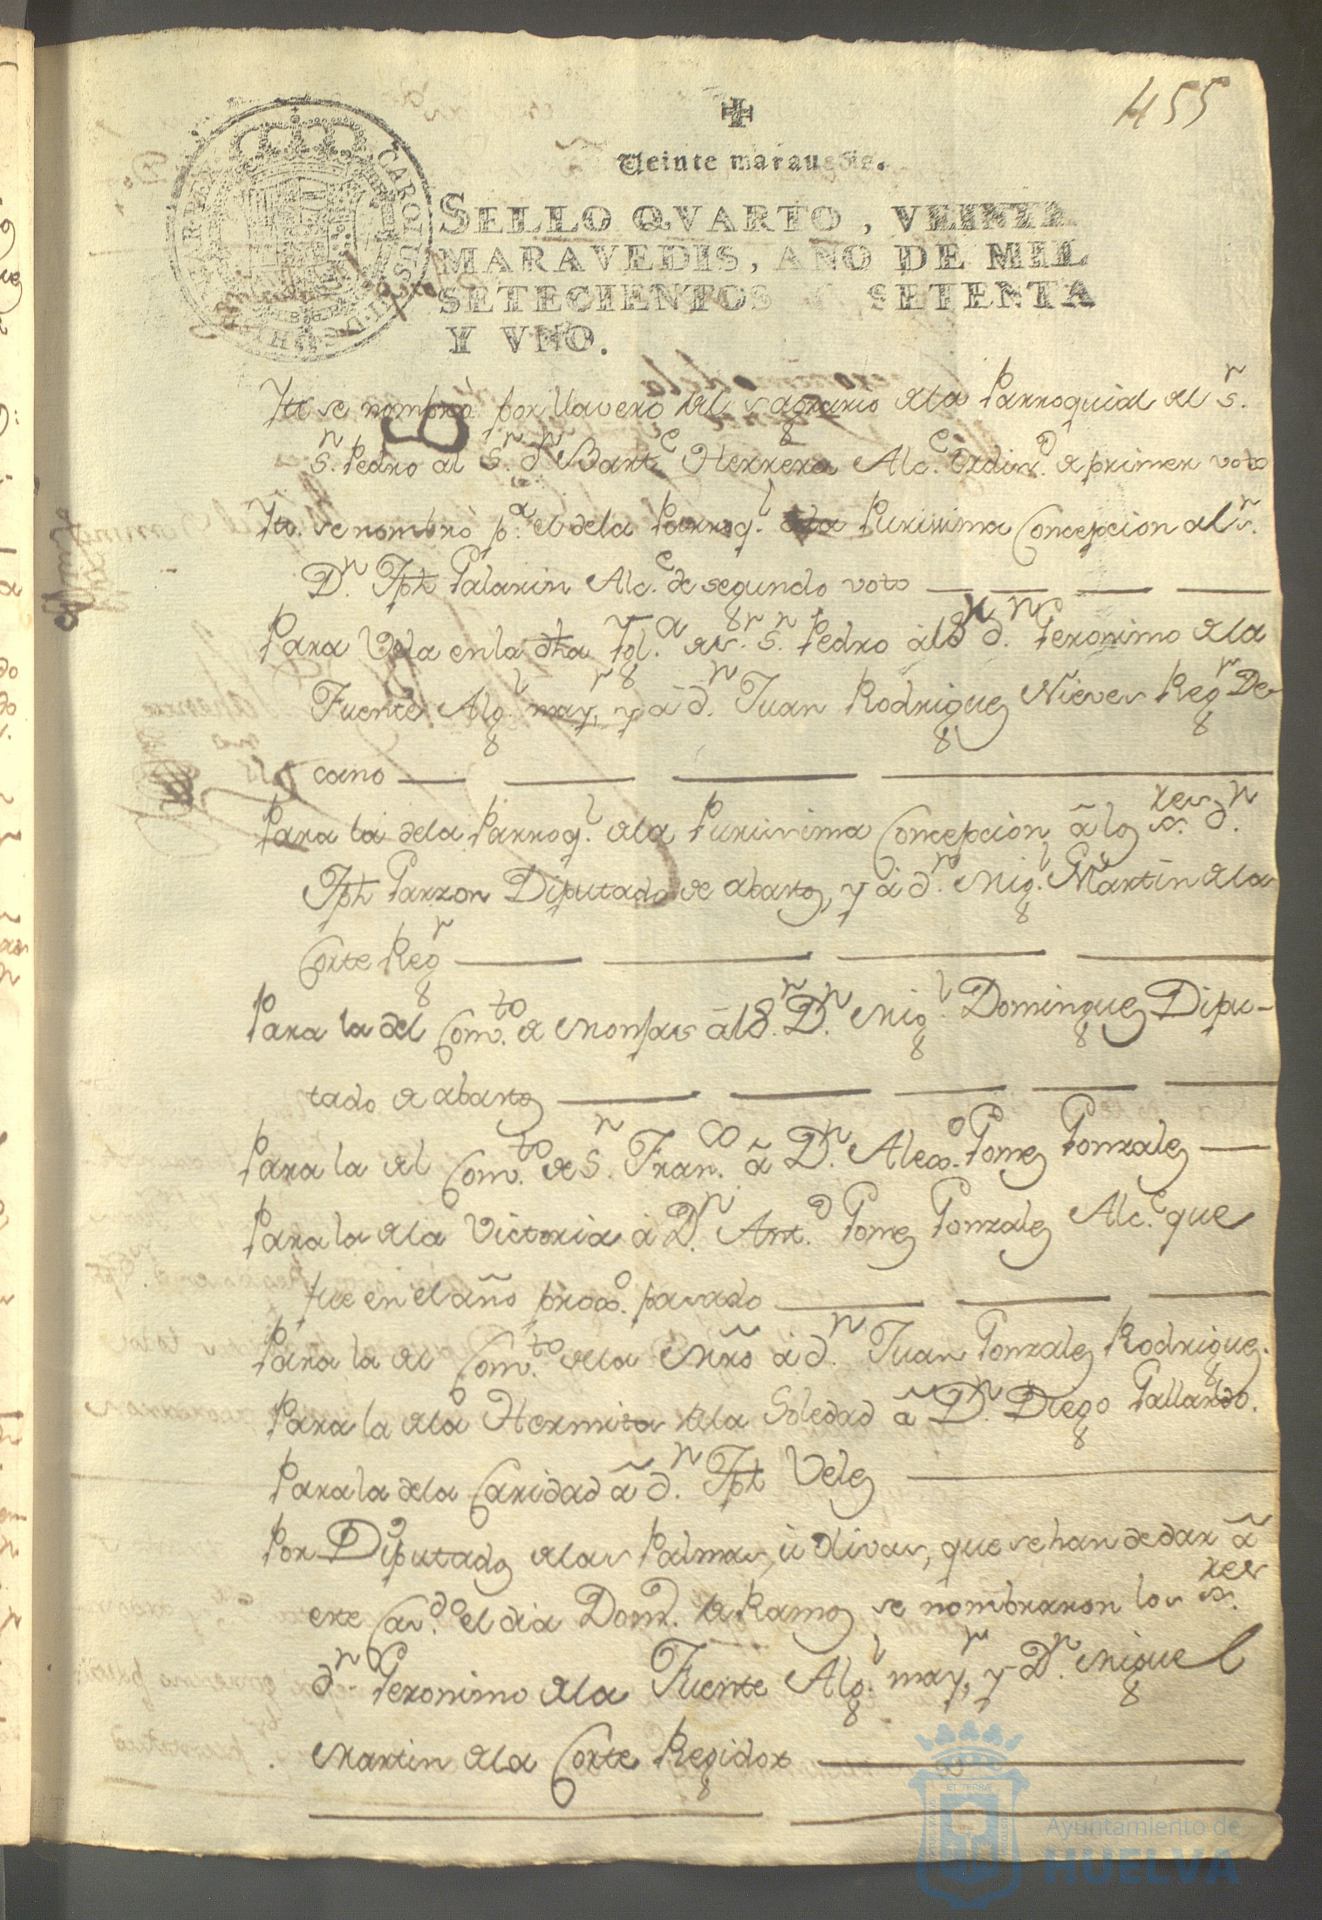 455
Veinte marauedis.
SELLO QVARTO, VEINTE
MARAVEDIS, AÑO DE MIL
SETECIENTOS Y SETENTA
Y VNO.
CAROLUS III D G HISPANIAR REX
Itt se nombró por llavero del sagrario de la Parroquial del Sr.
Sn. Pedro al Sr. Dn. Barte. Herrera Alce. Ordino. de primer voto
Itt. se nombró pa. el de la Parroql. de la Purissima Concepcion al Sr.
Dn. Jph Galarin Alce. de segundo voto
Para Vela en la dha Igla. del Sr. Sn. Pedro àl Sr. dn. Geronimo de la
Fuente Algl. mayr, y à dn. Juan Rodriguez Nieves Regr. De-
cano
Para la de la Parroql. de la Purissima Concepcion, à los Sres. dn.
Jph Garzon Diputado de abastos, y à dn. Migl. Martin de la
Corte Regr
Para la del Comto. de Monjas àl Sr. Dn. Migl. Dominguez Dipu-
tado de abastos
Para la del Comto. de Sn. Franco. à Dn. Alexo. Gomez Gonzalez
Para la de la Victoria à Dn. Anto. Gomez Gonzalez Alce. que
fue en el año proxo. pasado
Para la del Comto. de la Mrd à dn. Juan Gonzalez Rodriguez.
Para la de la Hermita de la Soledad à Dn. Diego Gallardo.
Para la de la Caridad à dn. Jph Velez
Por Diputados de las Palmas, ù olivas, que se han de dar à
este Cavdo. el dia Domo. de Ramos se nombraron los Sres.
dn. Geronimo de la Fuente Algl. mayr, y Dn. Miguel
Martin de la Corte Regidor
Ayuntamiento de
HUELVA